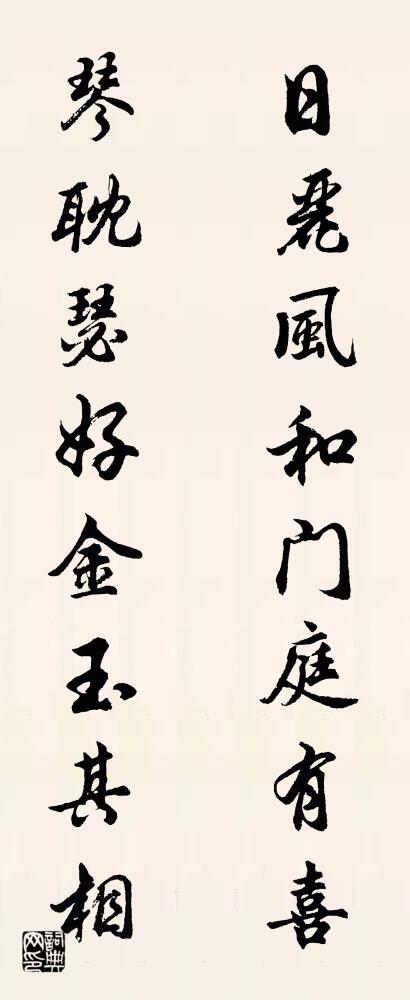 日麗風和門庭有喜
琴耽瑟好金玉其相
詞典网印